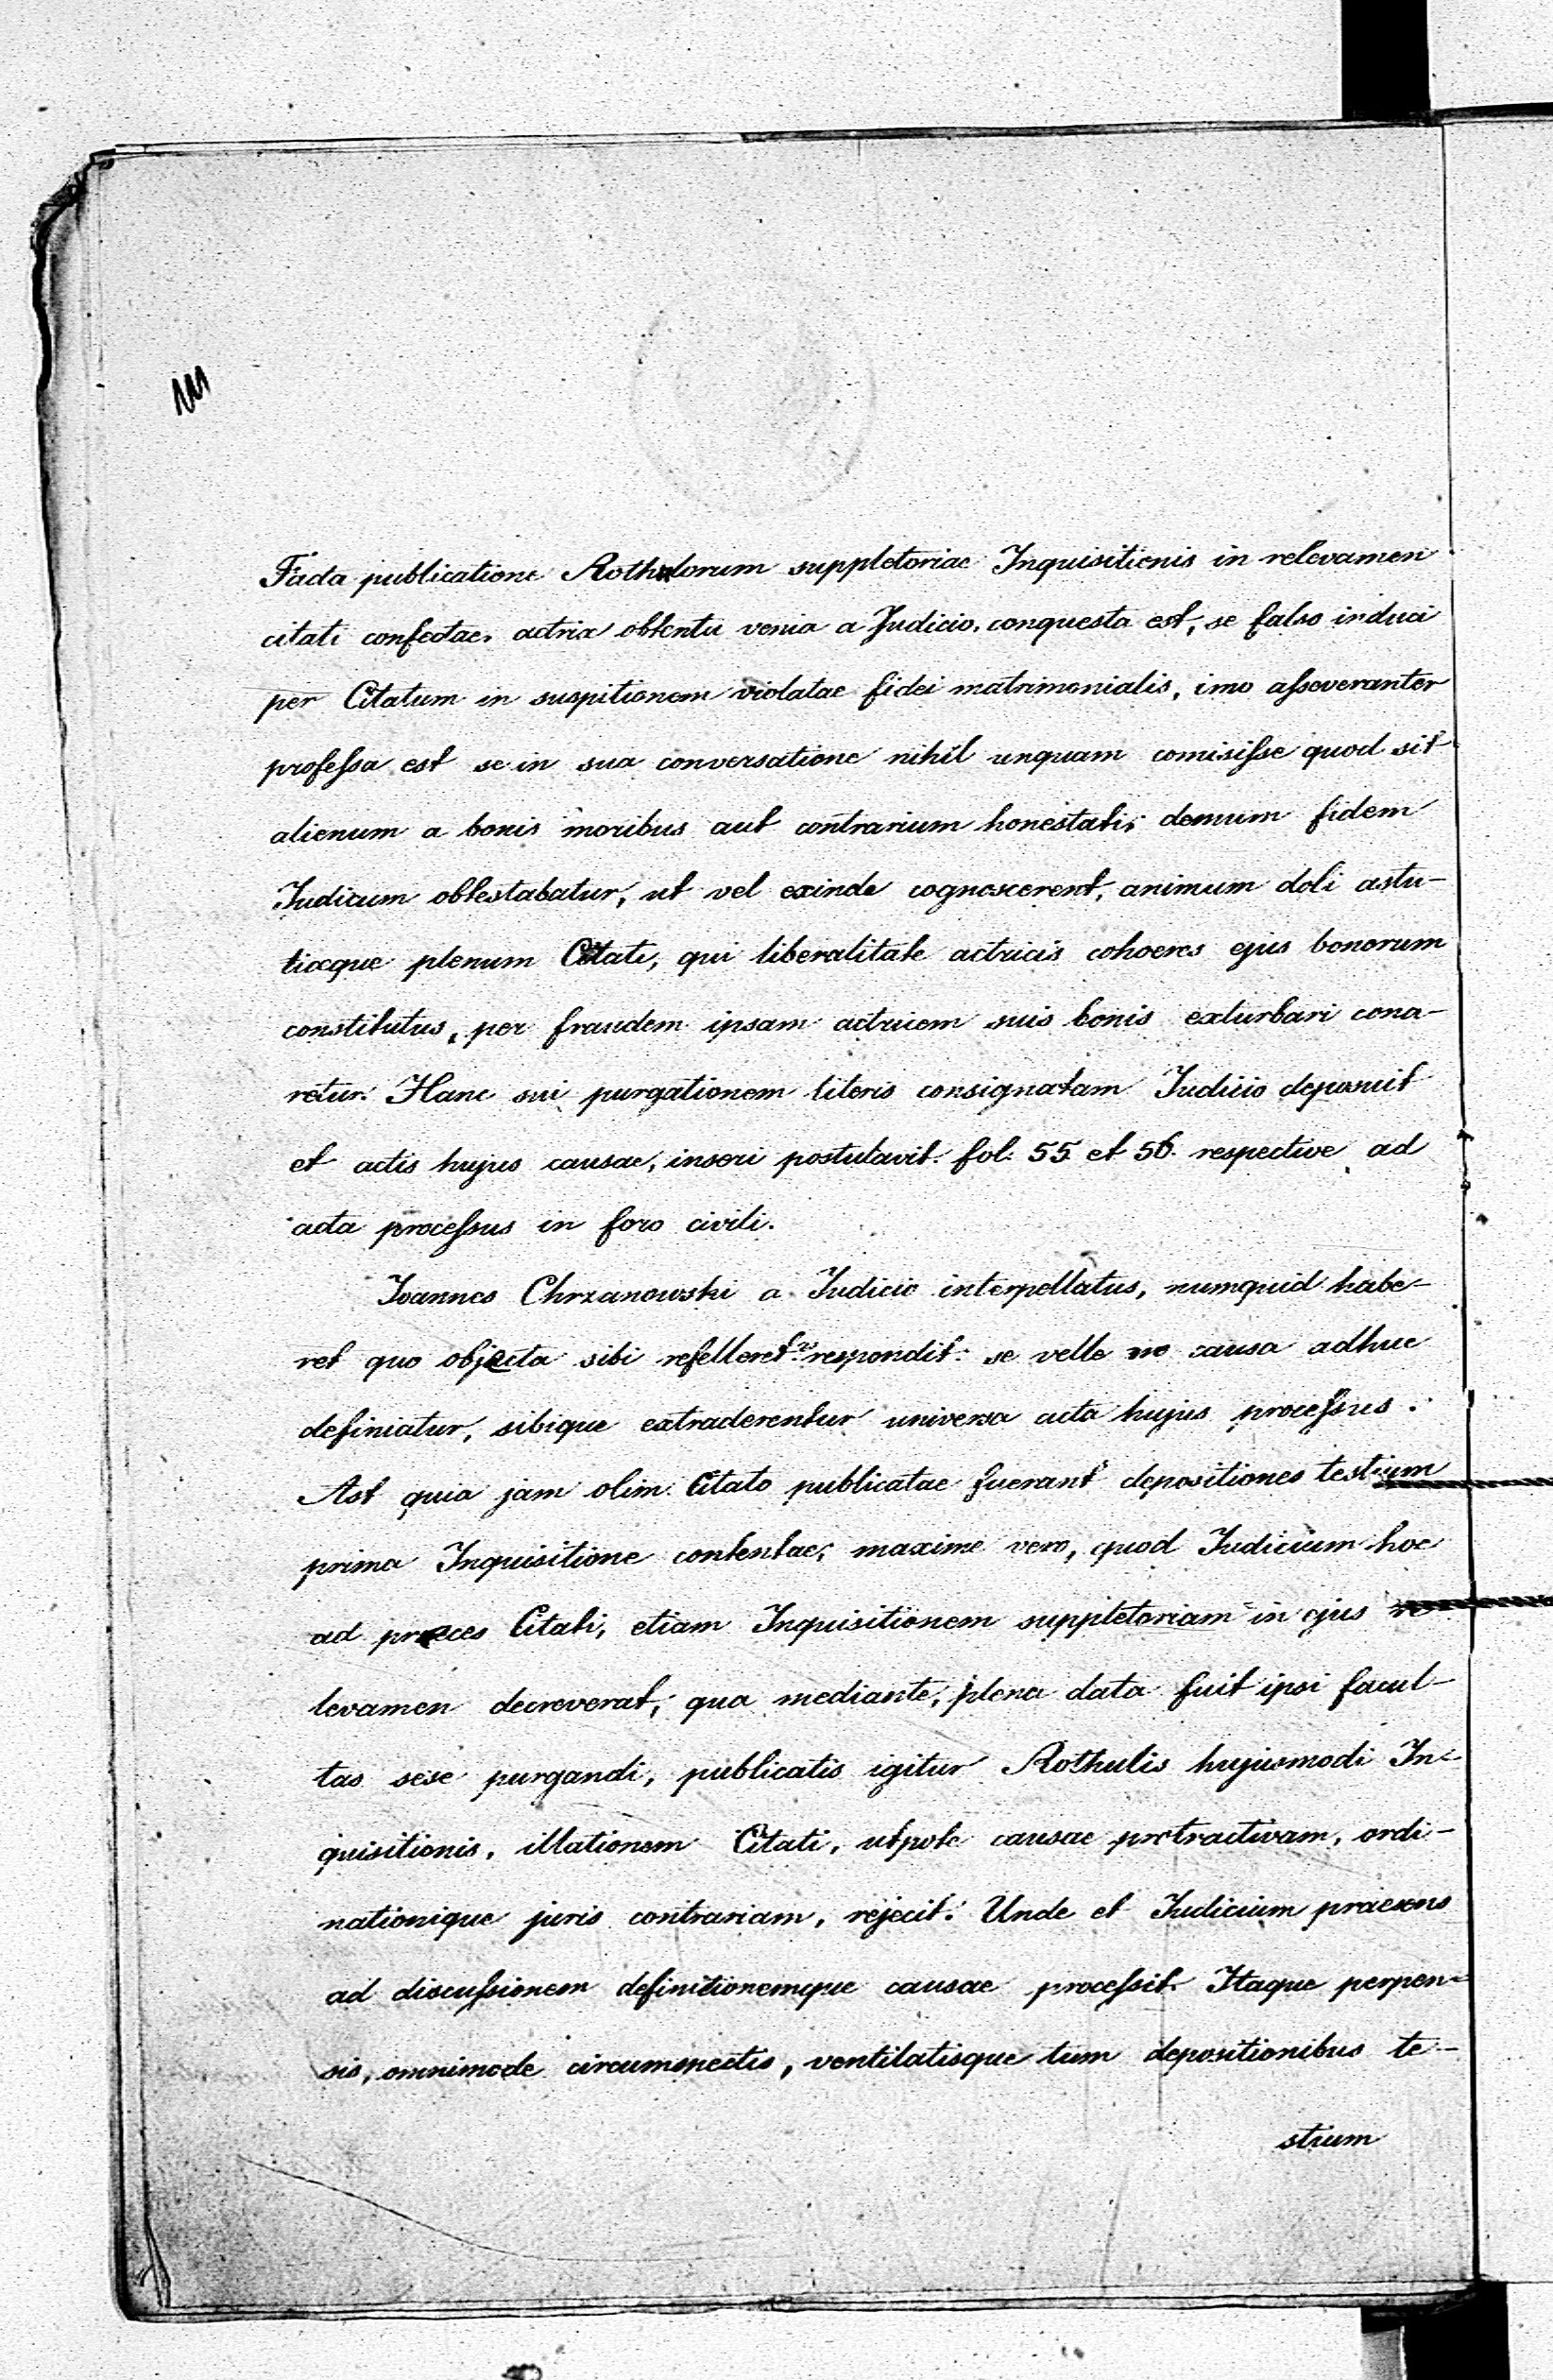 Facta publicatione Rothulorum suppletoriae Inquisitionis in relevamen
citati confectae, actrix obtentu venia a Judicio, conquesta est, se falso induci
per Citatum in suspitionem violatae fidei matrimonialis, imo asseveranter
professa est se in sua conversatione nihil unquam comisisse quod sit
alienum a bonis moribus aut contrarium honestati; demum fidem
Iudicum obtestabatur, ut vel exinde cognoscerent, animum doli astu-
tiaeque plenum Citati, qui liberalitate actricis cohoeres ejus bonorum
constitutus, per fraudem ipsam actricem suis bonis exturbari cona-
retur. Hanc sui purgationem literis consignatam Iudicio deposuit
et actis hujus causae, inseri postulavit. fol: 55 et 56. respective ad
acta processus in foro civili.
Ioannes Chrzanowski a Iudicio interpellatus, numquid habe-
ret quo objecta sibi refelleret respondit: se velle no causa adhuc
definiatur, sibique extraderentur universa acta hujus processus.
Ast quia jam olim Citato publicatae fuerant depositiones testium
prima Inquisitione contentae; maxime vero, quod Iudicium hoc
ad preces Citati, etiam Inquisitionem suppletoriam in ejus re
levamen decreverat, qua mediante, plena data fuit ipsi facul-
tas sese purgandi, publicatis igitur Rothulis hujusmodi In-
quisitionis, illationem Citati, utpote causae protractivam, ordi-
nationique juris contrariam, rejecit. Unde et Iudicium praesens
ad discussionem definitionemque causae processit. Itaque perpen-
sis, omnimode circumspectis, ventilatisque tum depositionibus te-
stium